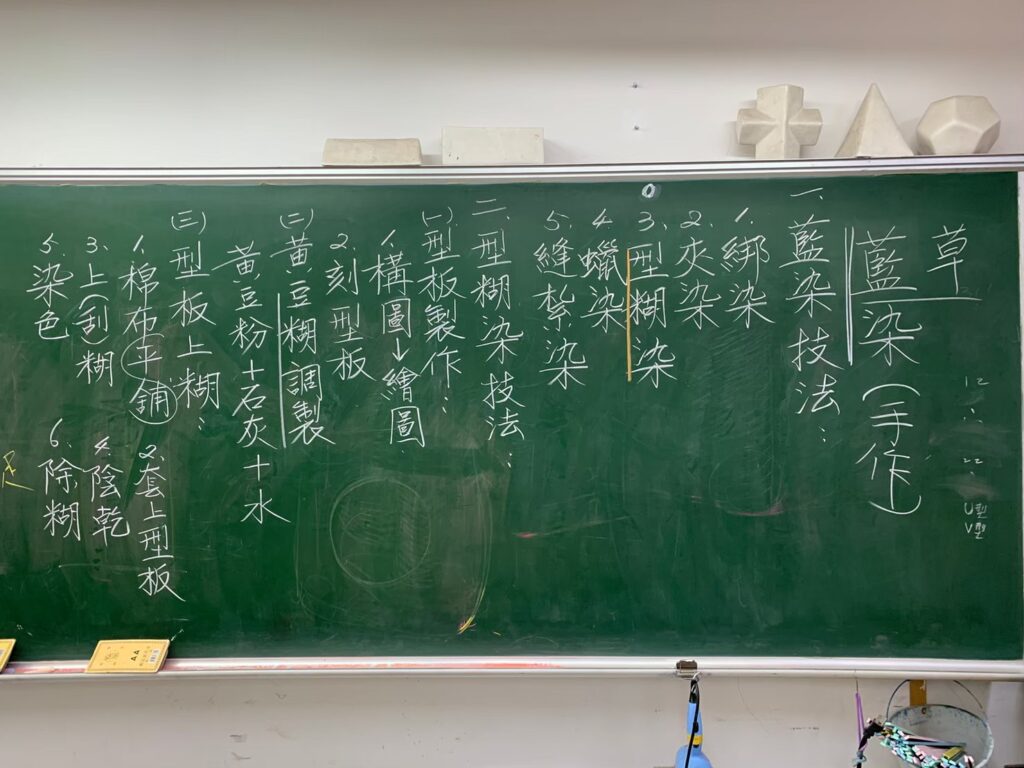 草
藍染(手作)
一、藍染技法：
1. 綁染
2. 灰染
3. 型糊染
4. 蠟染
5. 縫紮染
二、型糊染技法：
(一)型板製作：
1. 構圖→繪圖
2. 刻型板
(二)黃豆糊調製
黃豆粉+石灰+水
(三)型板上糊：
1. 棉布平鋪
2. 套上型板
3. 上(刮)糊
4. 陰乾
5. 染色
6. 除糊
U型
V型